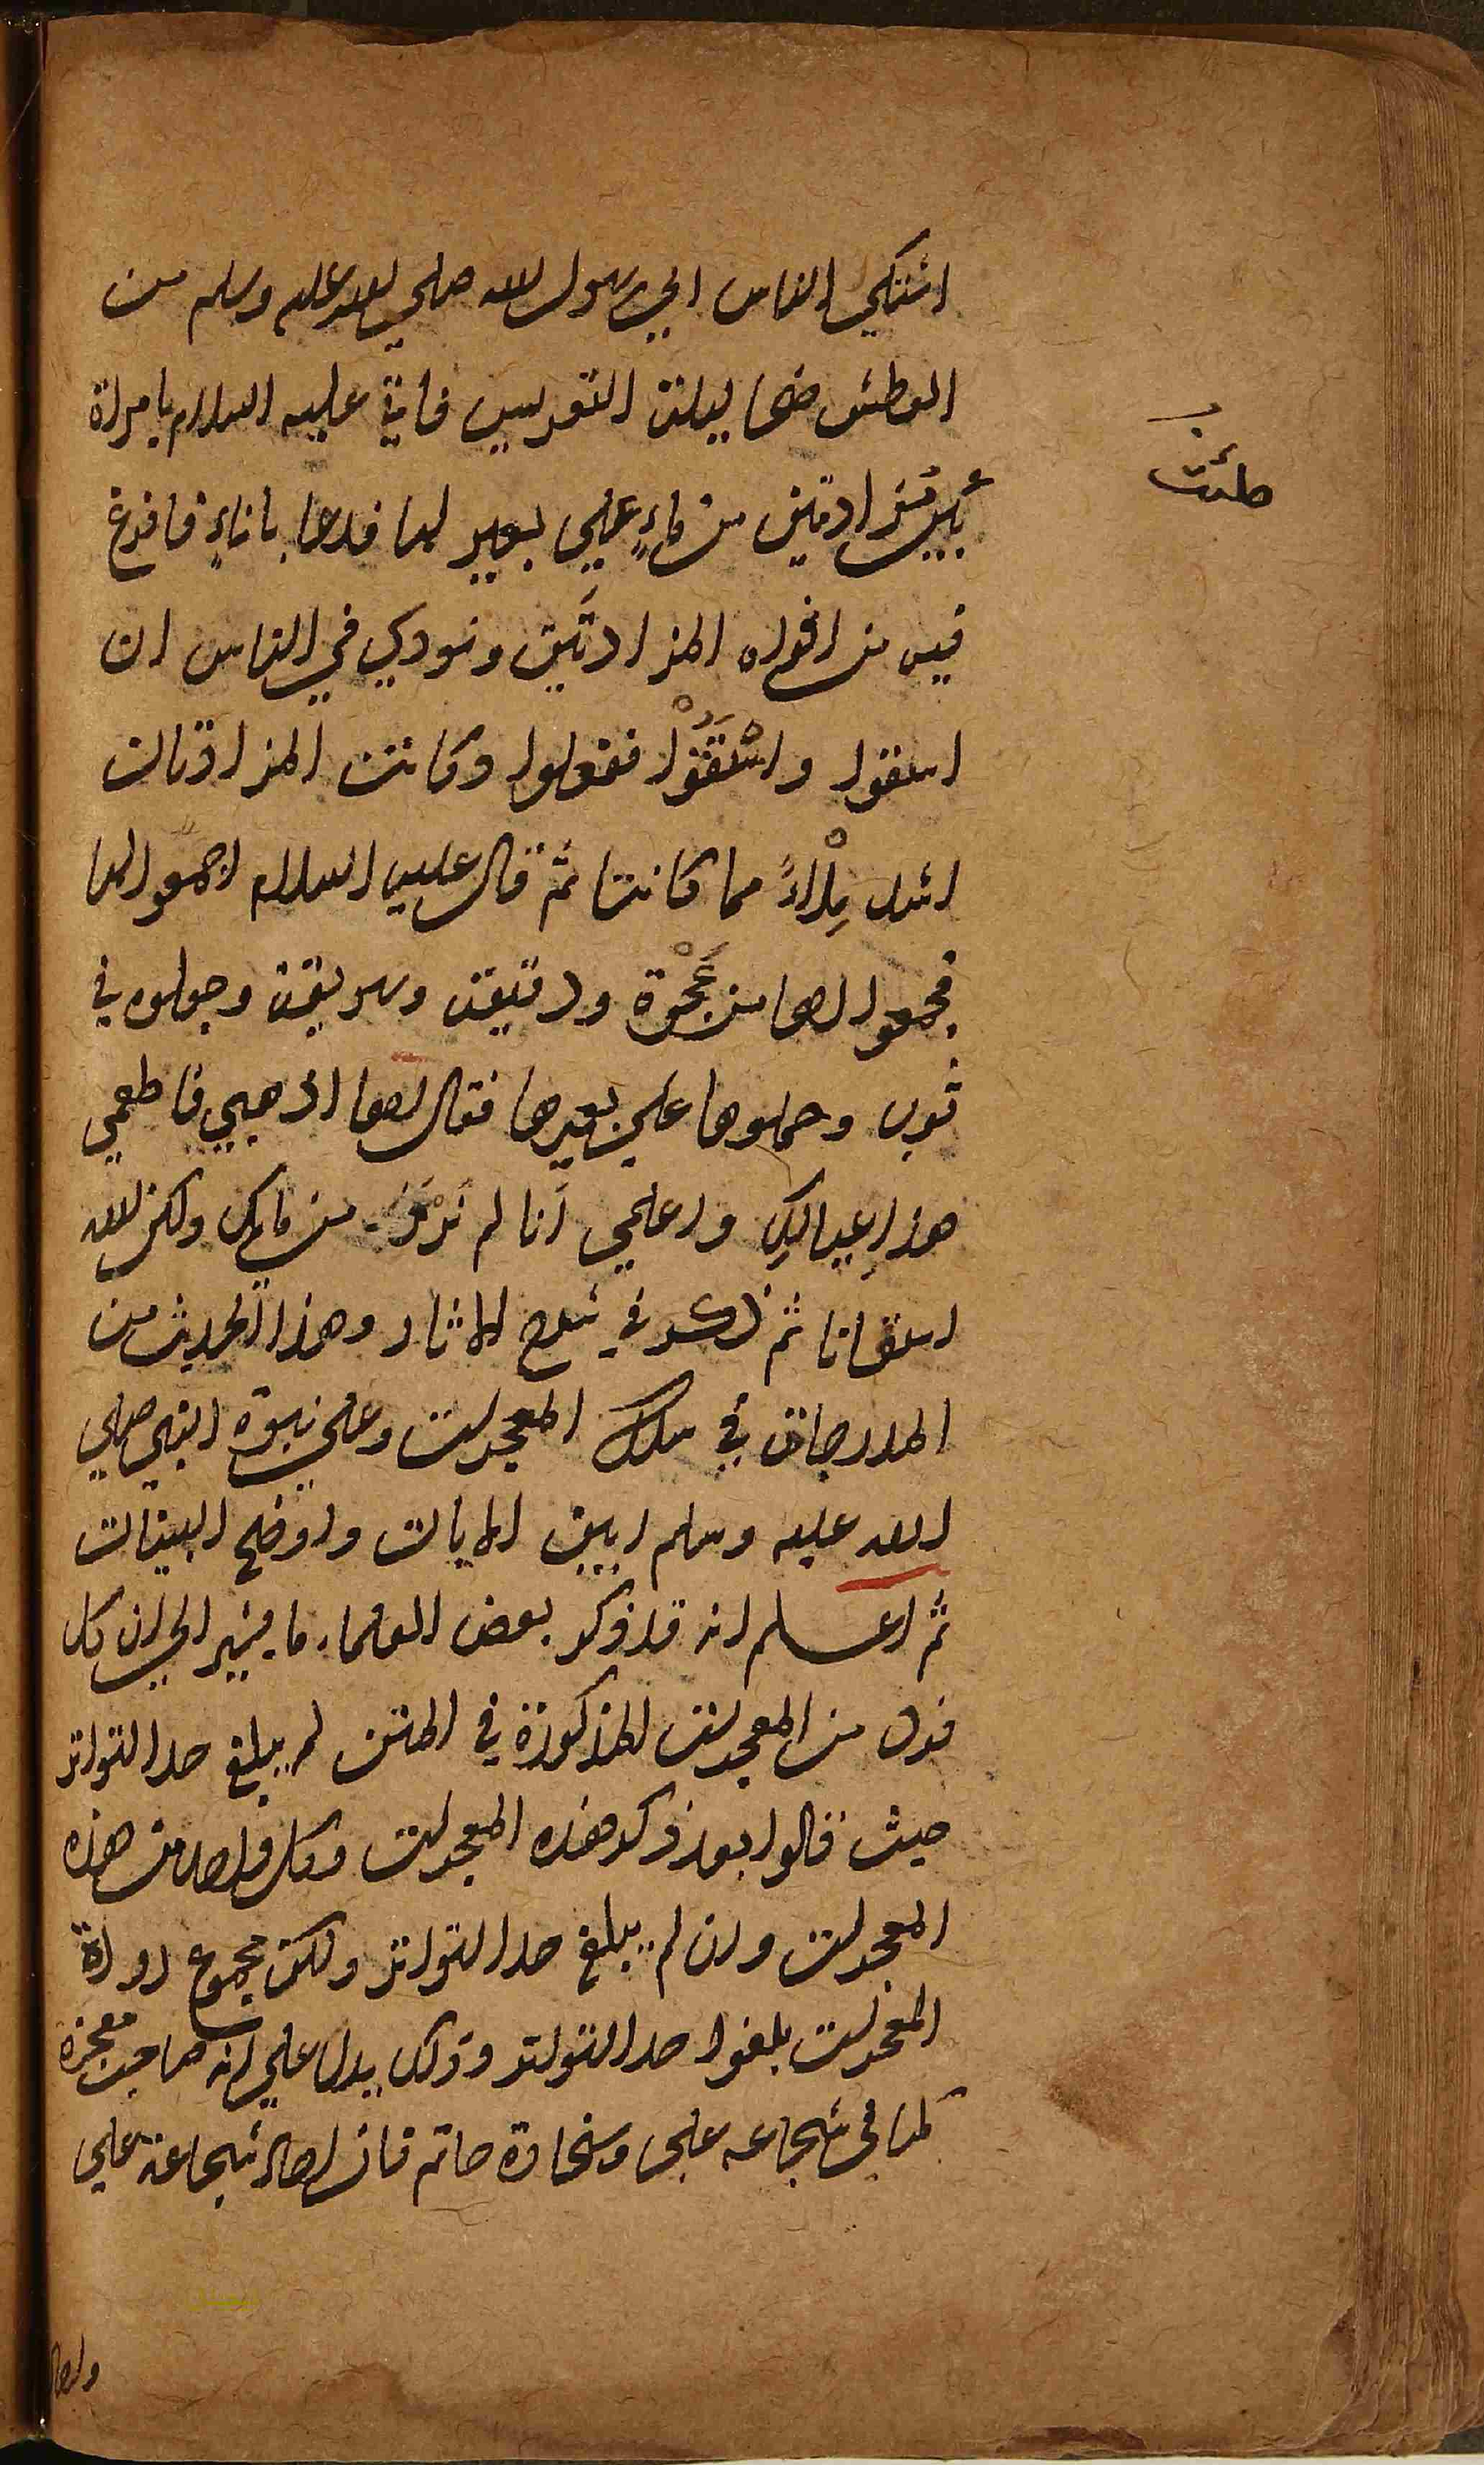 اشتكى الناس الي رسول الله صلي الله عليه وسلم من
العطش ضحا ليلة التعريس فاتي عليه السلام بامراة
بين مزادتين من ماءٍ علي بعير لها فدعا باناءٍ فافرغ
فيه من افواه المزادتَين ونودي في الناس ان
اسقوا واسْتَقَوْا ففعلوا وكانت المزادتان
اشد مِلْاءً مما كانتا ثم قال عليه السلام اجمعوا لها
فجمعوا لها من عَجْوَة ودقيقة وسويقة وجعلوه في
ثوب وحملوها علي بعيرها فقال لها اذهبي فاطعمي
هذا عيالكِ واعلمي اَنا لم نَرْزَ من مايك ولكن الله
اسقانا ثم ذكر في شرح الاثار وهذا الحديث من
المدرجات في سلك المعجزات وعلي نبوة النبي صلي
الله عليه وسلم ابين الايات واوضح البينات
ثم اعلم انه قد ذكر بعض العلماء ما يشير الي ان كل
فرد من المعجزات المذكورة في المتن لم يبلغ حد التواتر
حيث قالوا بعد ذكر هذه المعجزات وكل واحد من هذه
المعجزات وان لم يبلغ حد التواتر ولكن مجموع رواة
المعجزات بلغوا حد التواتر وذلك يدل علي انه صاحب معجزة
كما في شجاعة علي وسخاوة حاتم فان احاد شجاعة علي